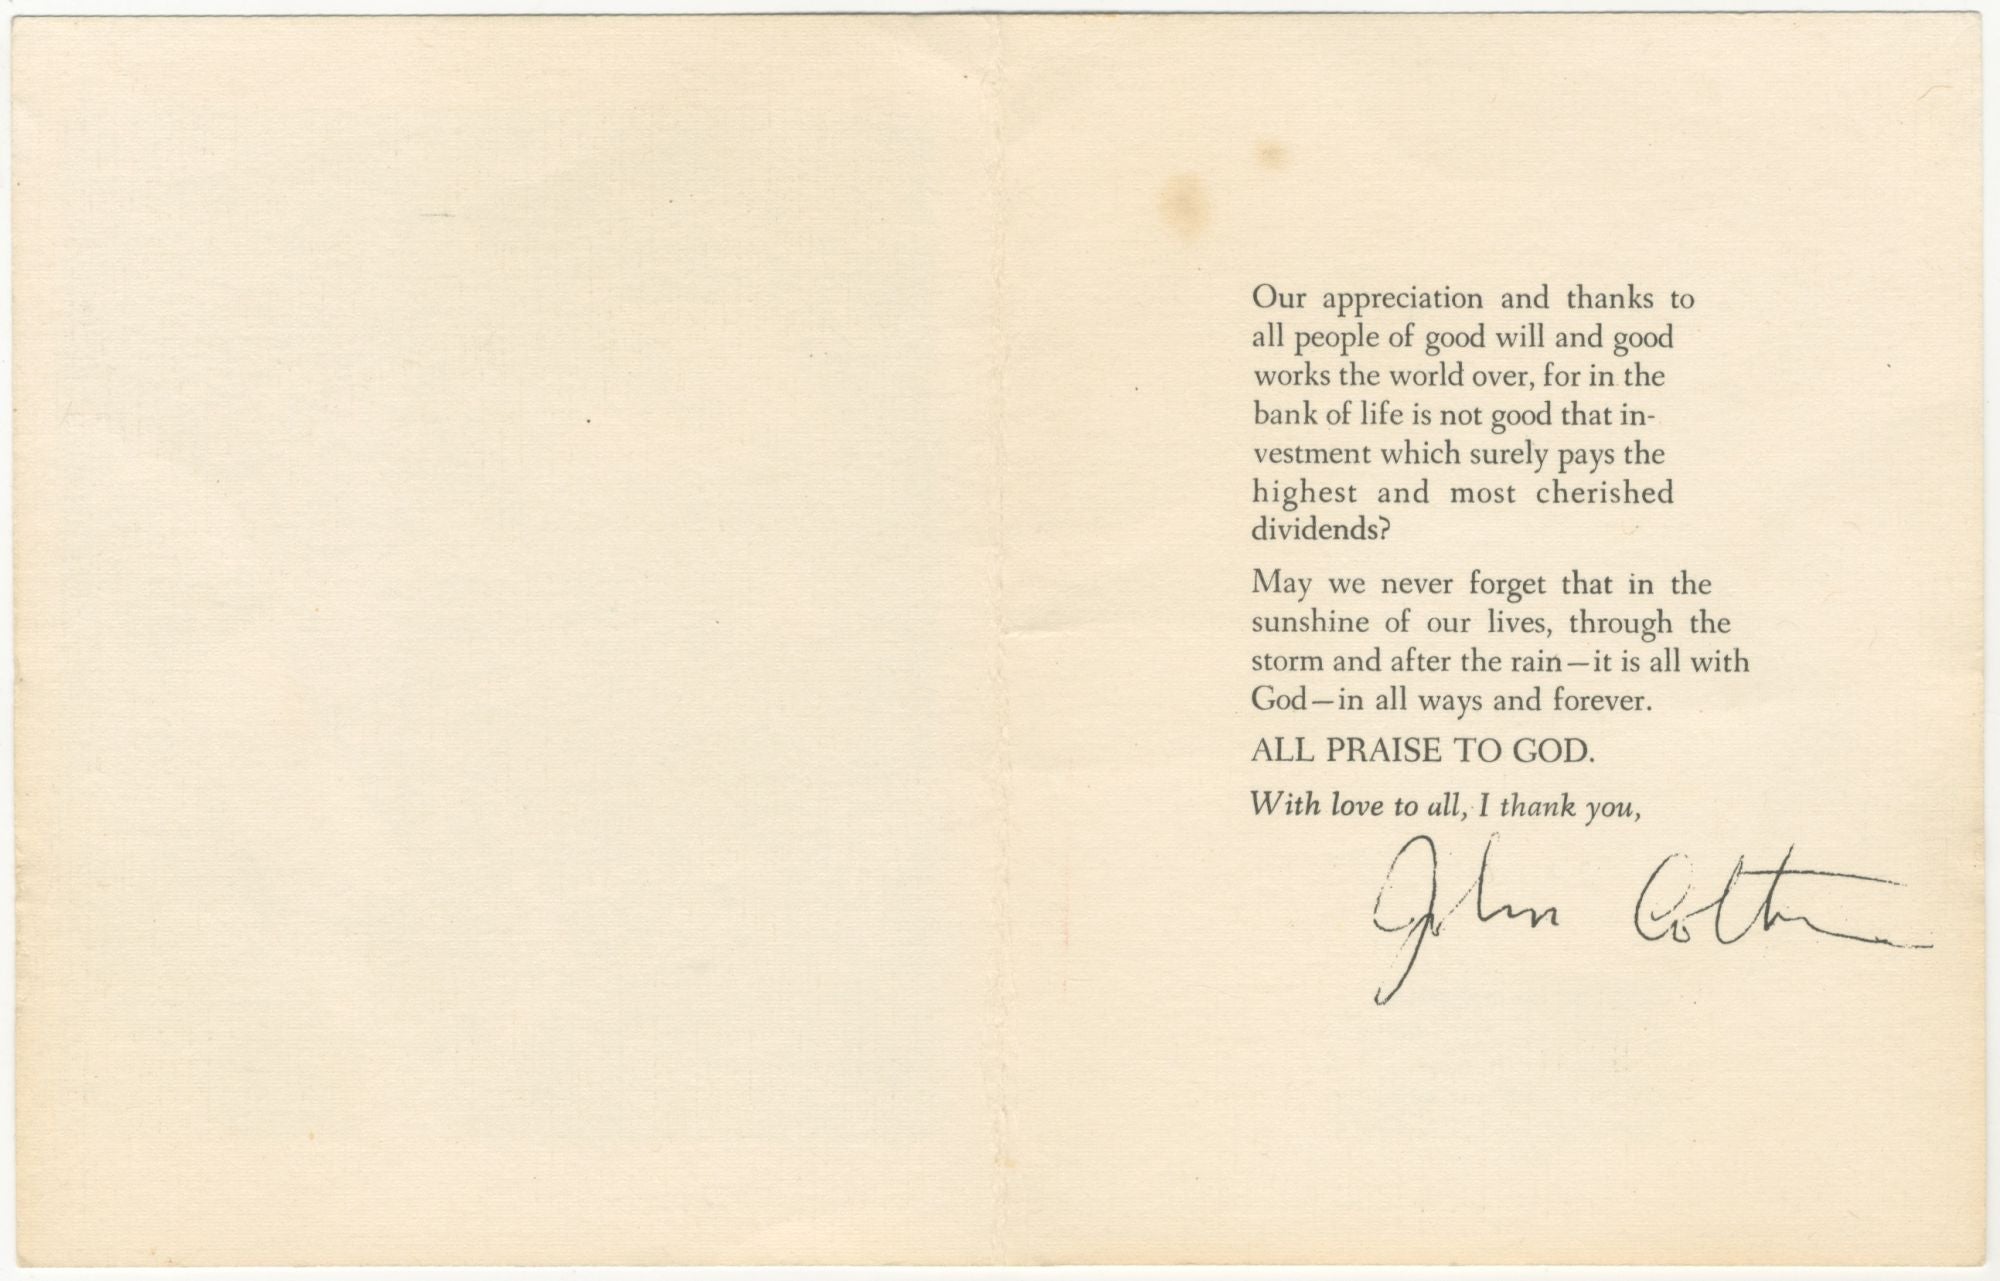 Our appreciation and thanks to
all people of good will and good
works the world over, for in the
bank of life is not good that in-
vestment which surely pays the
highest and most cherished
dividends?
May we never forget that in the
sunshine of our lives, through the
storm and after the rain—it is all with
God—in all ways and forever.
ALL PRAISE TO GOD.
With love to all, I thank you,
John Coltrane